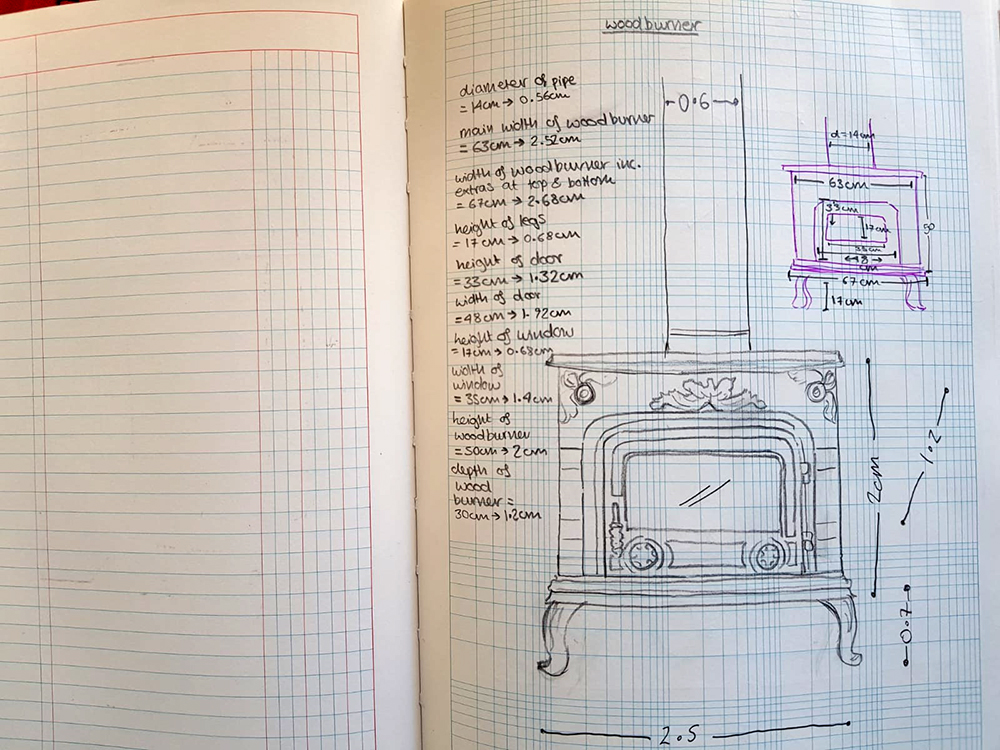 woodburner
diameter of pipe
= 14cm → 0.56cm
main width of woodburner
= 63cm → 2.52cm
width of woodburner inc.
extras at top & bottom
= 67cm → 2.68cm
height of legs
= 17cm → 0.68cm
height of door
= 33cm → 1.32cm
width of door
= 48cm → 1.92cm
height of window
= 17cm → 0.68cm
width of
window
= 35cm → 1.4cm
height of
woodburner
= 50cm → 2cm
depth of
wood
burner =
30cm → 1.2cm
0.6
d=14cm
63cm
33cm
17cm
50
35cm
48
cm
67cm
17cm
2cm
1.2
0.7
2.5